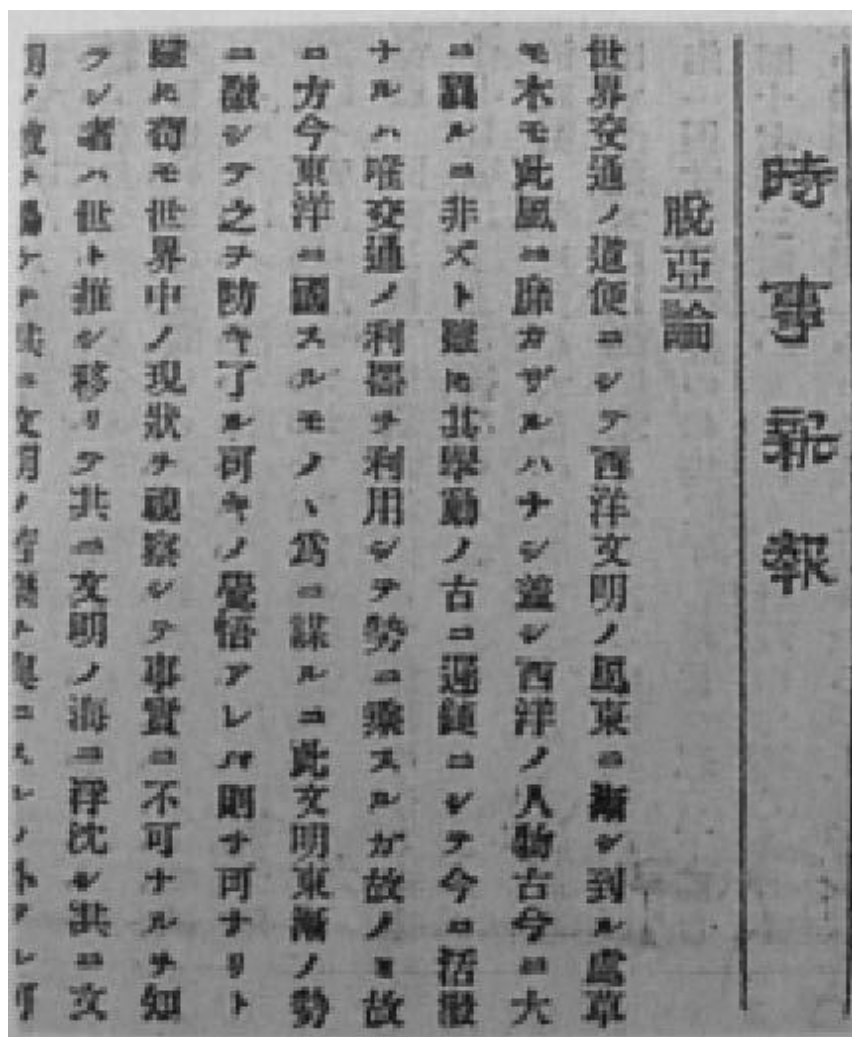 時事新報
脱亞論
世界交通ノ道便ニシテ西洋文明ノ風東ニ漸シ到ル處草
モ木モ此風ニ靡カザルハナシ蓋シ西洋ノ人物古今ニ大
ニ異ルニ非ズト雖𪜈其擧動ノ古ニ遲鈍ニシテ今ニ活潑
ナルハ唯交通ノ利器ヲ利用シテ勢ニ乘ズルガ故ノミ故
ニ方今東洋ニ國スルモノヽ爲ニ謀ルニ此文明東漸ノ勢
ニ激シテ之ヲ防キ了ル可キノ覺悟アレバ則チ可ナリト
雖𪜈苟モ世界中ノ現狀ヲ視察シテ事實ニ不可ナルヲ知
ラン者ハ世ト推シ移リテ共ニ文明ノ海ニ浮沈シ共ニ文
明ノ波ヲ揚ケテ共ニ文明ノ苦樂ヲ與ニスルノ外アル可